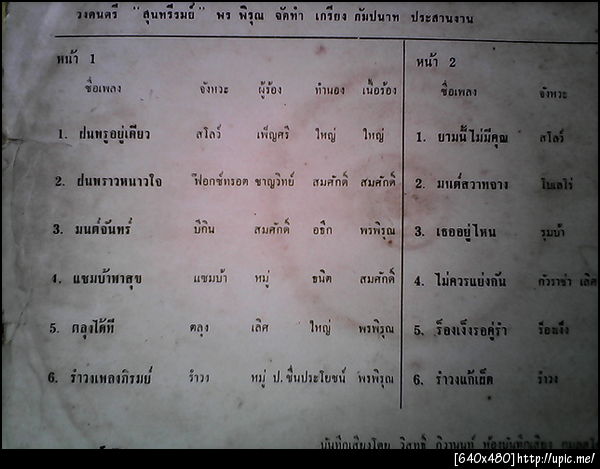 วงดนตรี "สุนทรีรมย์" พร พิรุณ จัดทำ เกรียง กัมปนาท ประสานงาน
หน้า 1
ชื่อเพลง จังหวะ ผู้ร้อง ทำนอง เนื้อร้อง
1. ฝนพรูอยู่เดียว สโลว์ เพ็ญศรี ใหญ่ ใหญ่
2. ฝนพราวหนาวใจ ฟ๊อกซ์ทรอต ชาญวิทย์ สมศักดิ์ สมศักดิ์
3. มนต์จันทร์ บีกิน สมศักดิ์ อธึก พรพิรุณ
4. แซมบ้าพาสุข แซมบ้า หมู่ ธนิต สมศักดิ์
5. ตลุงได้ที ตลุง เลิศ ใหญ่ พรพิรุณ
6. รำวงเพลงภิรมย์ รำวง หมู่ ป. ชื่นประโยชน์ พรพิรุณ
หน้า 2
ชื่อเพลง จังหวะ
1. ยามนี้ไม่มีคุณ สโลว์
2. มนต์สวาทจาง โบเลโร่
3. เธออยู่ไหน รุมบ้า
4. ไม่ควรแย่งกัน กัวราช่า เลิศ
5. ร็องเง็งรอคู่รำ ร็องเง็ง
6. รำวงแก้เผ็ด รำวง
บันทึกเสียงโดย วิสุทธิ์ ห้องบันทึกเสียง
[640x480]http://upic.me/